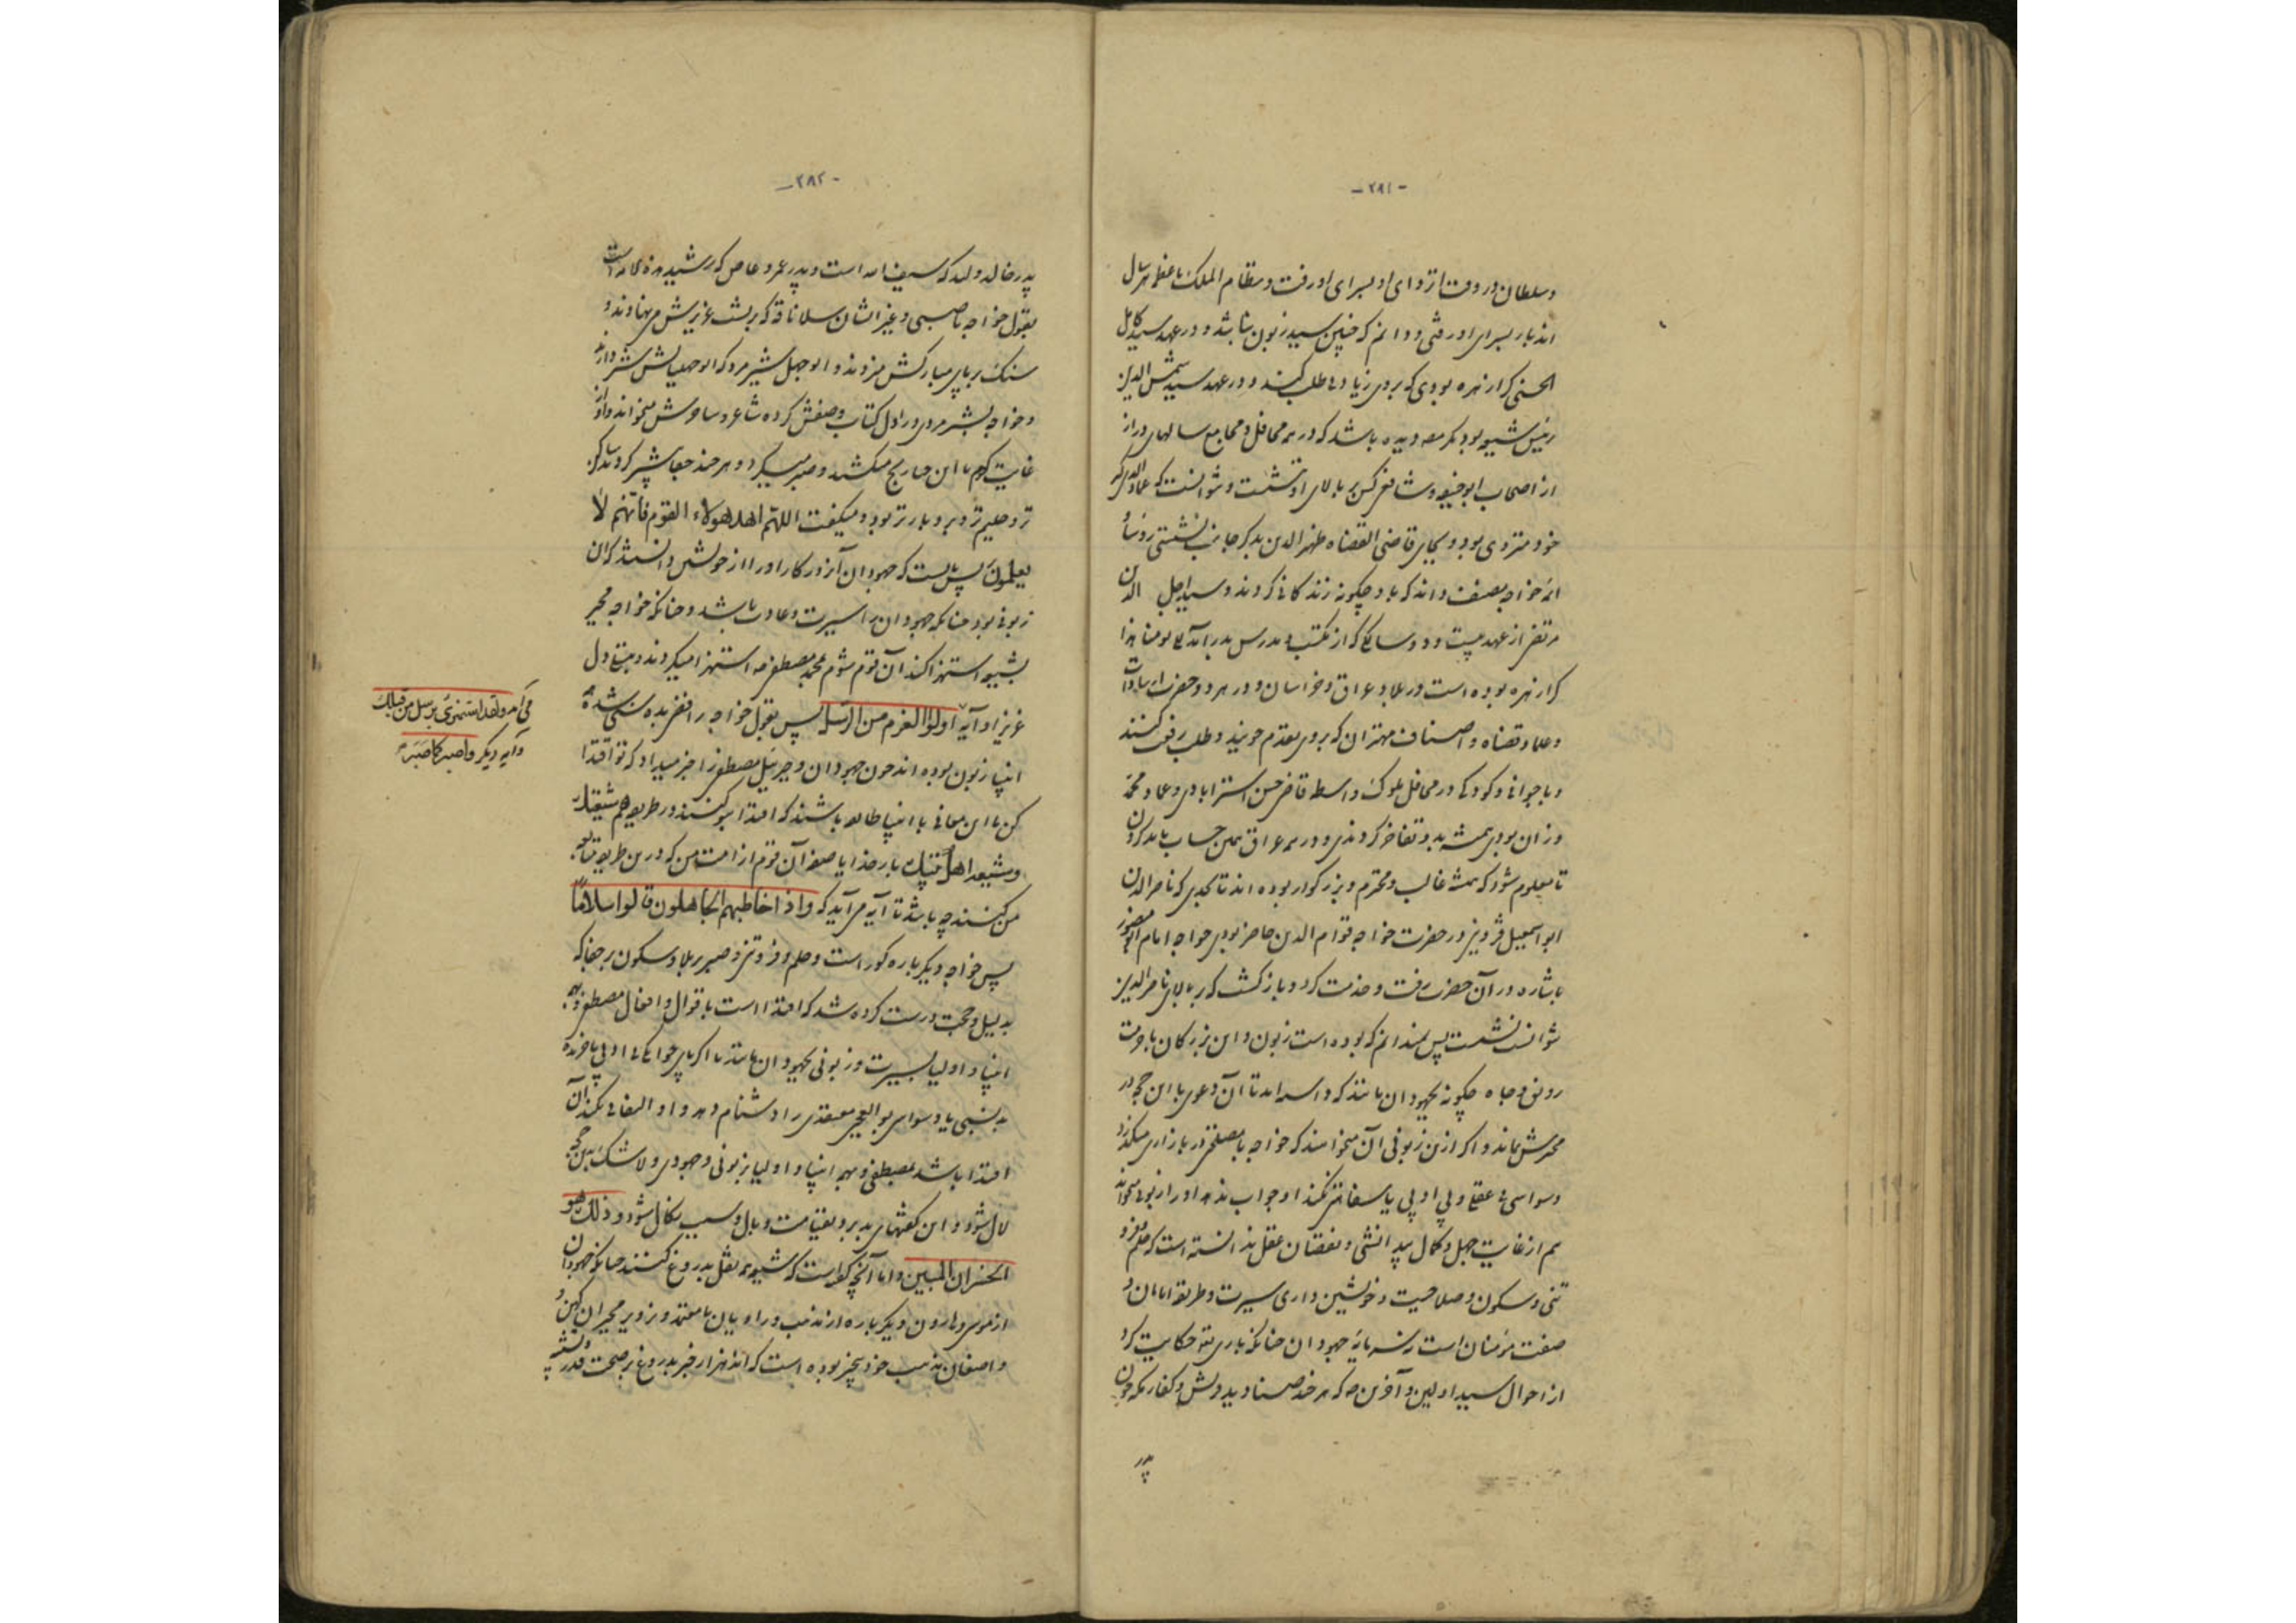 -۲۸۱-
وسلطان در وقت انزوای او بسرای او رفت و نظام الملک با عظمتش هر سال
اند بار بسرای او رفتی و دانم که چنین سید زبون نباشد و در عهد سید کامل
الحسنی کرا زهره بودی که بروی زیادتی طلب کند و در عهد سید شمس الدین
رئیس شیعه بود مکر مصنف دیده باشد که در همه محافل و مجامع سالهای دراز
از اصحاب ابوحنیفه و شافعی کس بر بالای او ننشست و نتوانست که عماد الدین که
خود منزوی بود و بجای قاضی القضاه ظهیر الدین بدیکر جانب نشستی رؤسا و
ائمه خواجه مصنف داند که با او چکونه زندکانی کردند و سید اجل الدین
مرتضی از عهد بیست و دو سالکی که از مکتب و مدرس بدر آمد
کرا زهره بوده است در بلاد عراق و خراسان و در هر دو حضرت از سادات
و علما و قضاه و اصناف مهتران که بروی تقدم جویند و طلب رفعت کنند
و با جوانی و کودکی در محافل ملوک و اسطه قاضی حسن استرابادی و عماد محمد
وزان بودی همیشه بدو تفاخر کردندی و در همه عراق همین حساب باید کردن
تا معلوم شود که همیشه غالب و محترم و بزرکوار بوده اند تا بحدی که ناصر الدین
ابو اسمعیل قزوینی در حضرت خواجه قوام الدین حاضر بودی خواجه امام ابو منصور
ماشاده در آن حضرت رفت و خدمت کرد و باز کشت که بر بالای ناصر الدین
نتوانست نشست پس نمیدانم که بوده است زبون و این بزرکان با حرمت
رونق و جاه چکونه بجهودان مانند که داسه اند تا آن دعوی با این حجت در
محرش بماند و اکر ازین زبونی آن میخواهند که خواجه با مصلحتی در بازاری میکذرد
وسواسی بی عقلی و بی ادبی با سفاهتی بکند او جواب ندهد او را زبون میخواند
هم از غایت جهل و کمال بیدانشی و نقصان عقل ندانسته است که حلم و فرو
تنی و سکون و صلاحیت و خویشتن داری سیرت و طریقه امامان و
صفت مؤمنان است نه سرمایه جهودان چنانکه باری تعالی حکایت کرد
از احوال سید اولین و آخرین ص که هر چند صنادید قریش و کفار مکه چون
پدر
-۲۸۲-
پدر خالد ولید که سیف الله است و پدر عمرو عاص که رشید
بقول خواجه ناصبی و غیر ایشان سلا ناقه که بر پشت عزیزش می نهادند و
سنک بر پای مبارکش میزدند و ابو جهل
و خواجه بشیر مردی در اول کتاب وصفش کرده شاعر و ساحرش میخواند و او از
غایت کرم با این همه رنج میکشید و صبر میکرد و هر چند جفا بیشتر کردند شاکر
تر و حلیم تر و بردبارتر بود و میکفت اللهم اهد هولاء القوم فانهم لا
یعلمون پس بایست که جهودان آنروز کار او را از خویش دانستند که آن
زبونی بود چنانکه جهودان را سیرت و عادت باشد و چنانکه خواجه مجبر
بشیعه استهزا کند آن قوم شوم بمحمد مصطفی ص استهزا میکردند و تسلی دل
عزیز او آیه اولوا العزم من الرسل پس بقول خواجه رافضی بده سنی شده
انبیا زبون بوده اند چون جهودان و جبرئیل مصطفی را خبر میداد که تو اقتدا
کن با این معانی با انبیا
و شیعه اهل بیت بار خدایا صفت آن قوم از امت من که درین طریق متابعت
من کنند چه باشد تا آیه می آید که واذا خاطبهم الجاهلون قالوا سلاما
پس خواجه دیکر باره کور است و حلم و فروتنی و صبر بر بلا و سکون بر جفا که
بدلیل و حجت درست کرده شد که اقتدا است باقوال و افعال مصطفی و همه
انبیا و اولیا بسیرت و زبونی جهودان ماند تا اکر
بد نسبی یا وسواسی بو العجبی معتقدی را دشنام دهد و او التفاتی نکند آن
اقتدا باشد بمصطفی و همه انبیا و اولیا نه زبونی و جهودی و لاشک بدین حجت
لال شود و این کفتهای بد بر وی بقیامت وبال و سبب نکال شود و ذلک هو
الخسران المبین و اما آنچه کفته است که شیعه همه نقل بدروغ کنند چنانکه جهودان
از موسی و هارون دیکر باره از مذهب و راویان نامعتمد و تزویر مجبران کهن و
واضعان مذهب خود بیخبر بوده است که اند هزار خبر بدروغ بر صحت قدر و تشبیه
می آمد و لقد استهزئ برسل من قبلک
و آیه دیکر و اصبر کما صبر